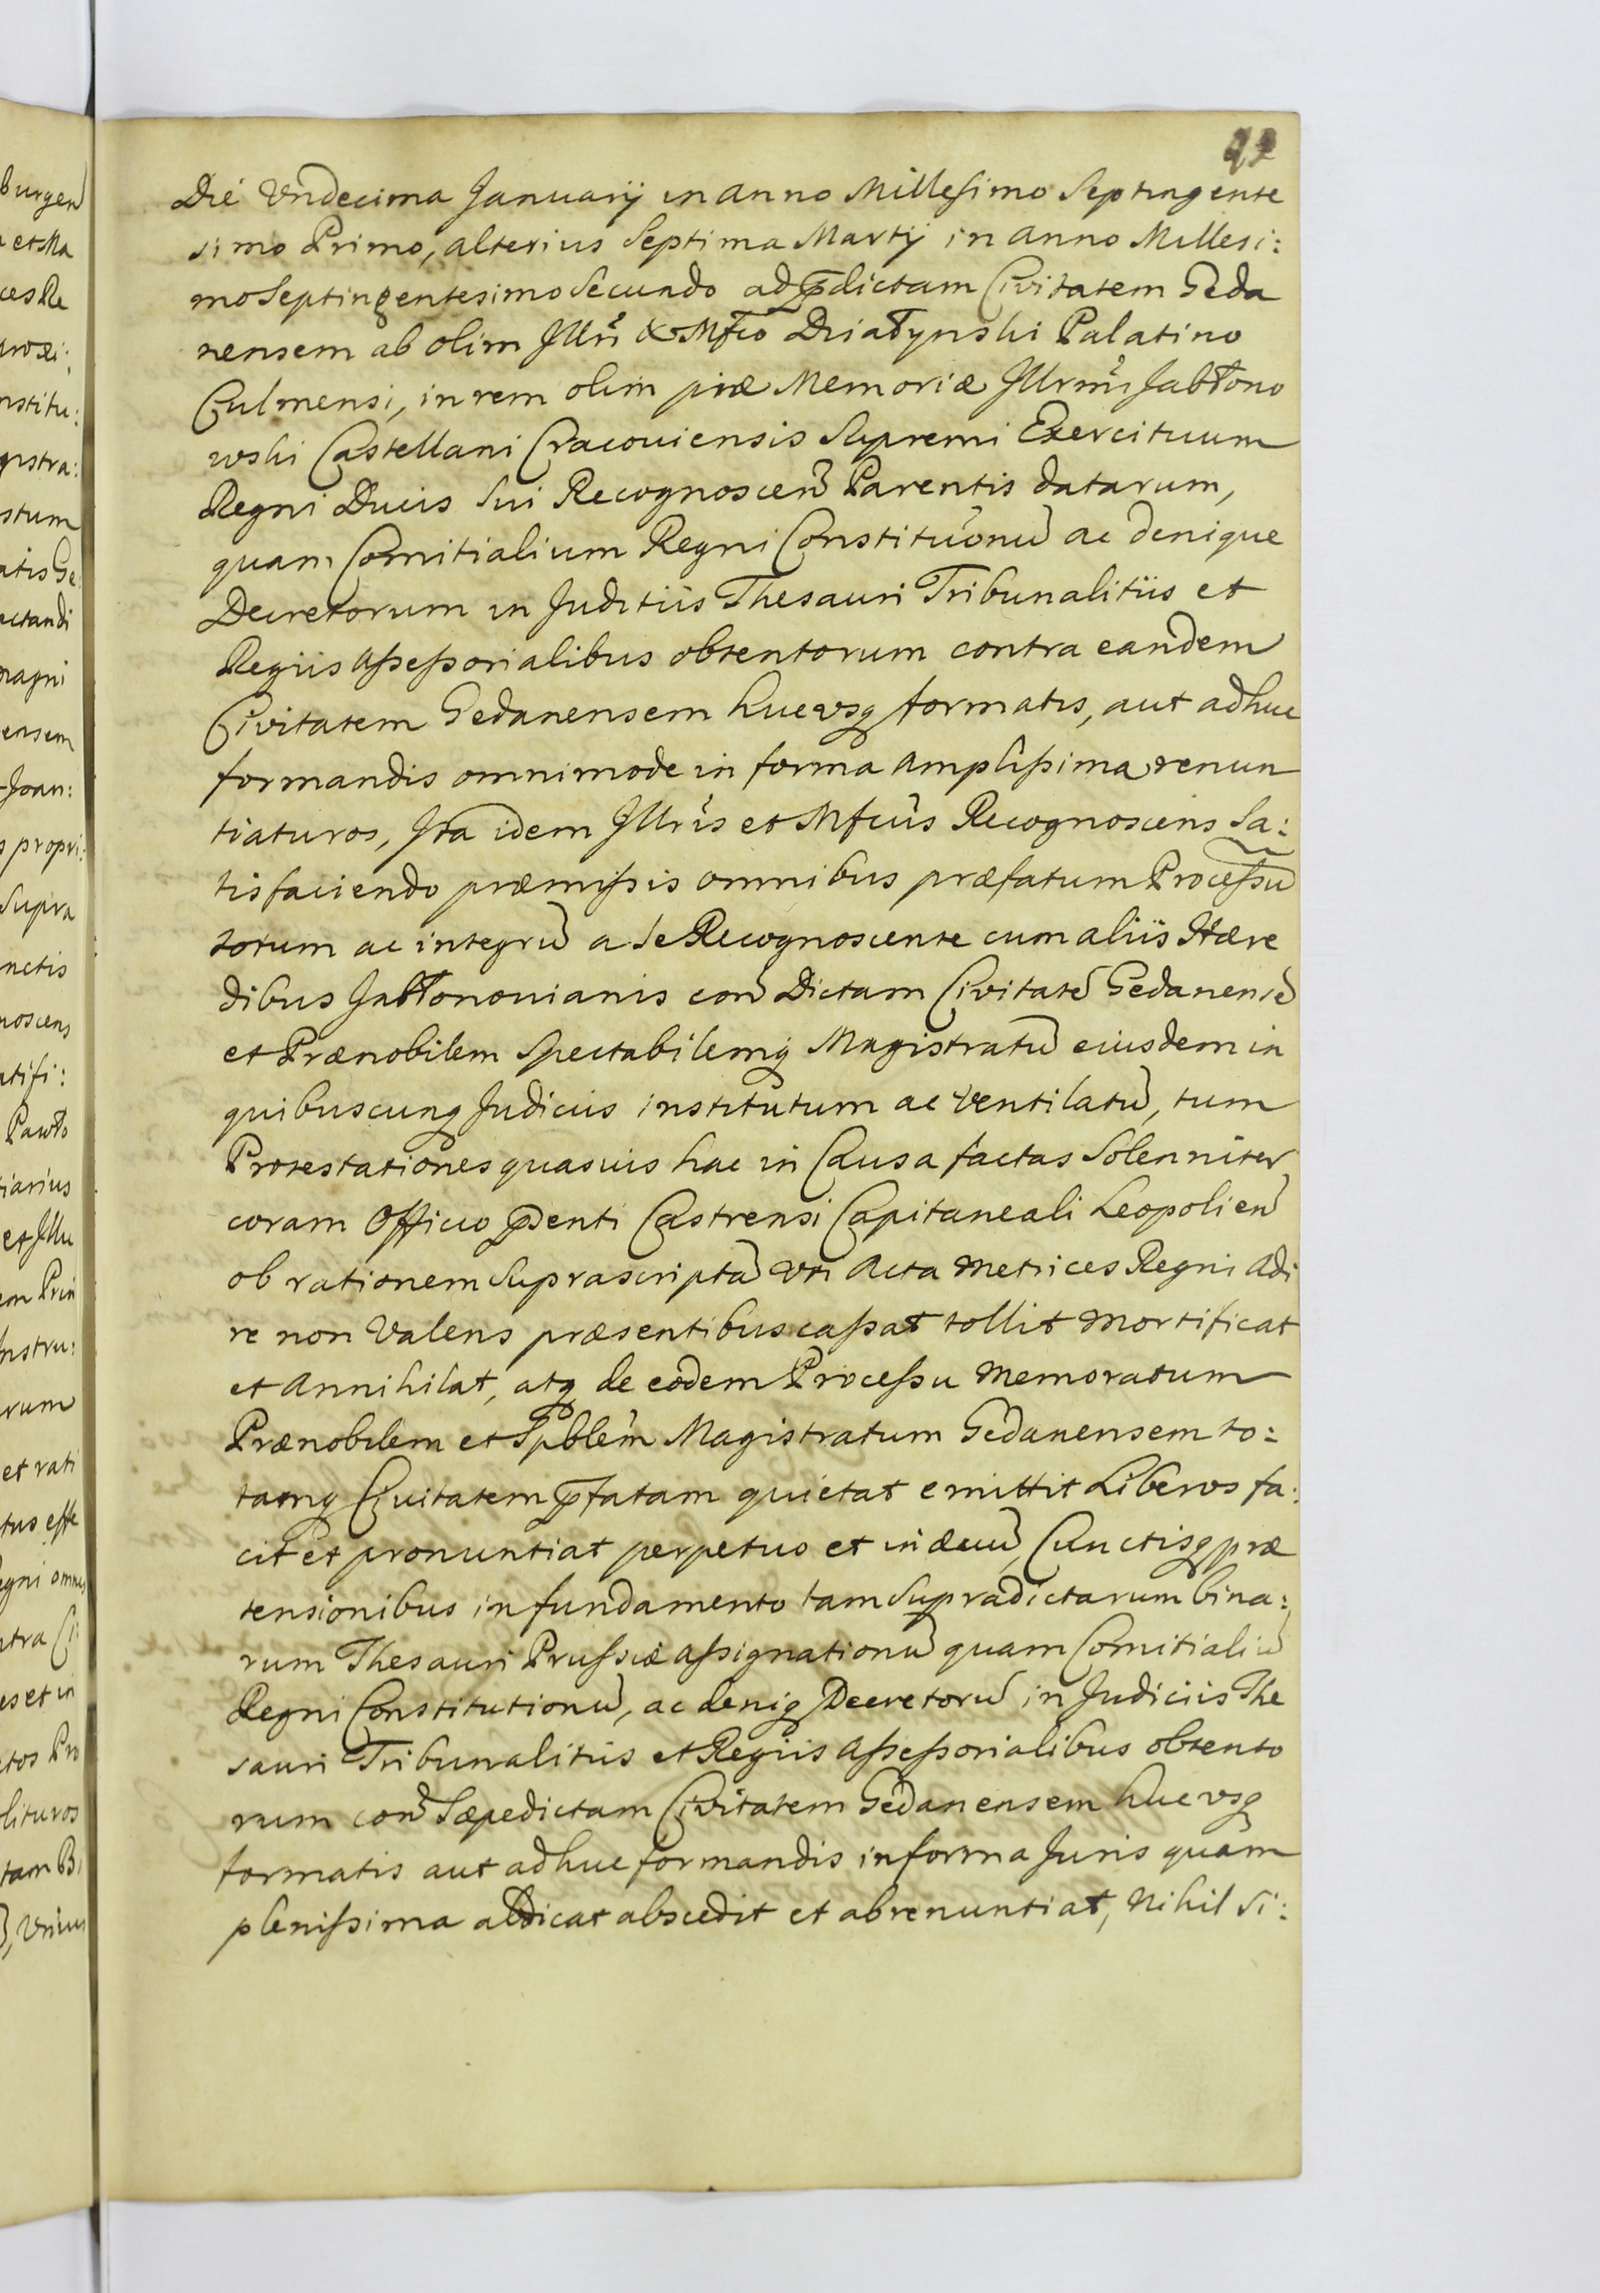 Die Vndecima Januarij in anno Millesimo Septingente
simo Primo, alterius Septima Martij in anno Millesi:
mo Septingentesimo Secundo ad p̄dictam Civitatem Geda
nensem ab olim Illri & Mfco Działynski Palatino
Culmensi, in rem olim piæ Memoriæ Illrmi Jabłono
wski Castellani Cracouiensis Supremi Exercituum
Regni Ducis Sui Recognoscen̄ Parentis datarum,
quam Comitialium Regni Constituõnū ac denique
Decretorum in Juditiis Thesauri Tribunalitiis et
Regiis Assessorialibus obtentorum contra eandem
Civitatem Gedanensem hucvsq formatis, aut adhuc
formandis omnimode in forma amplissima renun
tiaturos, Ita idem Illris et Mfcus Recognoscens Sa:
tisfaciendo præmissis omnibus præfatum Processū
totum ac integrū a se Recognoscente cum aliis Hære
dibus Jabłonouianis con̄ Dictam Civitatē Gedanensē
et Prænobilem Spectabilemq Magistratū eiusdem in
quibuscunq Judiciis institutum ac Ventilatū, tum
Protestationes quasuis hac in Causa factas Solenniter
coram Officio p̄senti Castrensi Capitaneali Leopolien̄
ob rationem Suprascriptā vti Acta Metrices Regni Adi
re non Valens præsentibus cassat tollit Mortificat
et Annihilat, atq de eodem Processu Memoratum
Prænobilem et Spblem Magistratum Gedanensem to:
tamq Ciuitatem p̄fatam quietat emittit Liberos fa:
cit et pronuntiat perpetuo et in æuū, Cunctisq præ
tensionibus in fundamento tam Supradictarum bina:
rum Thesauri Prussiæ Assignationū quam Comitialiū
Regni Constitutionū, ac deniq Decretorū in Judiciis The
sauri Tribunalitiis et Regiis Assessorialibus obtento
rum con̄ Sæpedictam Civitatem Gedanensem hucvsq
formatis aut adhuc formandis in forma Juris quam
plenissima abdicat abscedit et abrenuntiat, Nihil si: